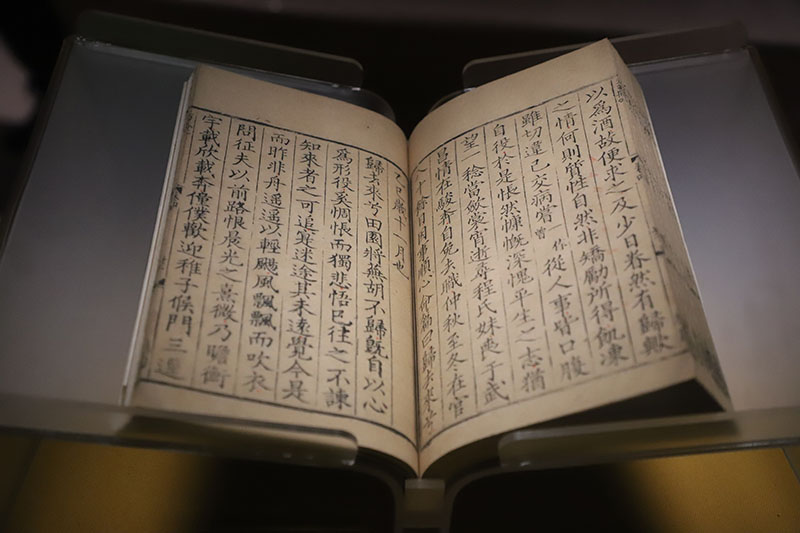 以為酒故便求之及少日眷然有歸歟
之情何則質性自然非矯勵所得飢凍
雖切違已交病嘗從人事皆口腹
自役於是悵然慷慨深愧平生之志猶
望一稔當斂裳宵逝尋程氏妹喪于武
昌情在駿奔自免去職仲秋至冬在官
八十餘日因事順心命篇曰歸去來兮
巳歲十月也
歸去來兮田園將蕪胡不歸旣自以心
為形役奚惆悵而獨悲悟已往之不諫
知來者之可追寔迷途其未遠覺今是
而昨非舟遥遥以輕颺風飄飄而吹衣
問征夫以前路恨晨光之熹微乃瞻衡
宇載欣載奔僮僕歡迎稚子候門三逕